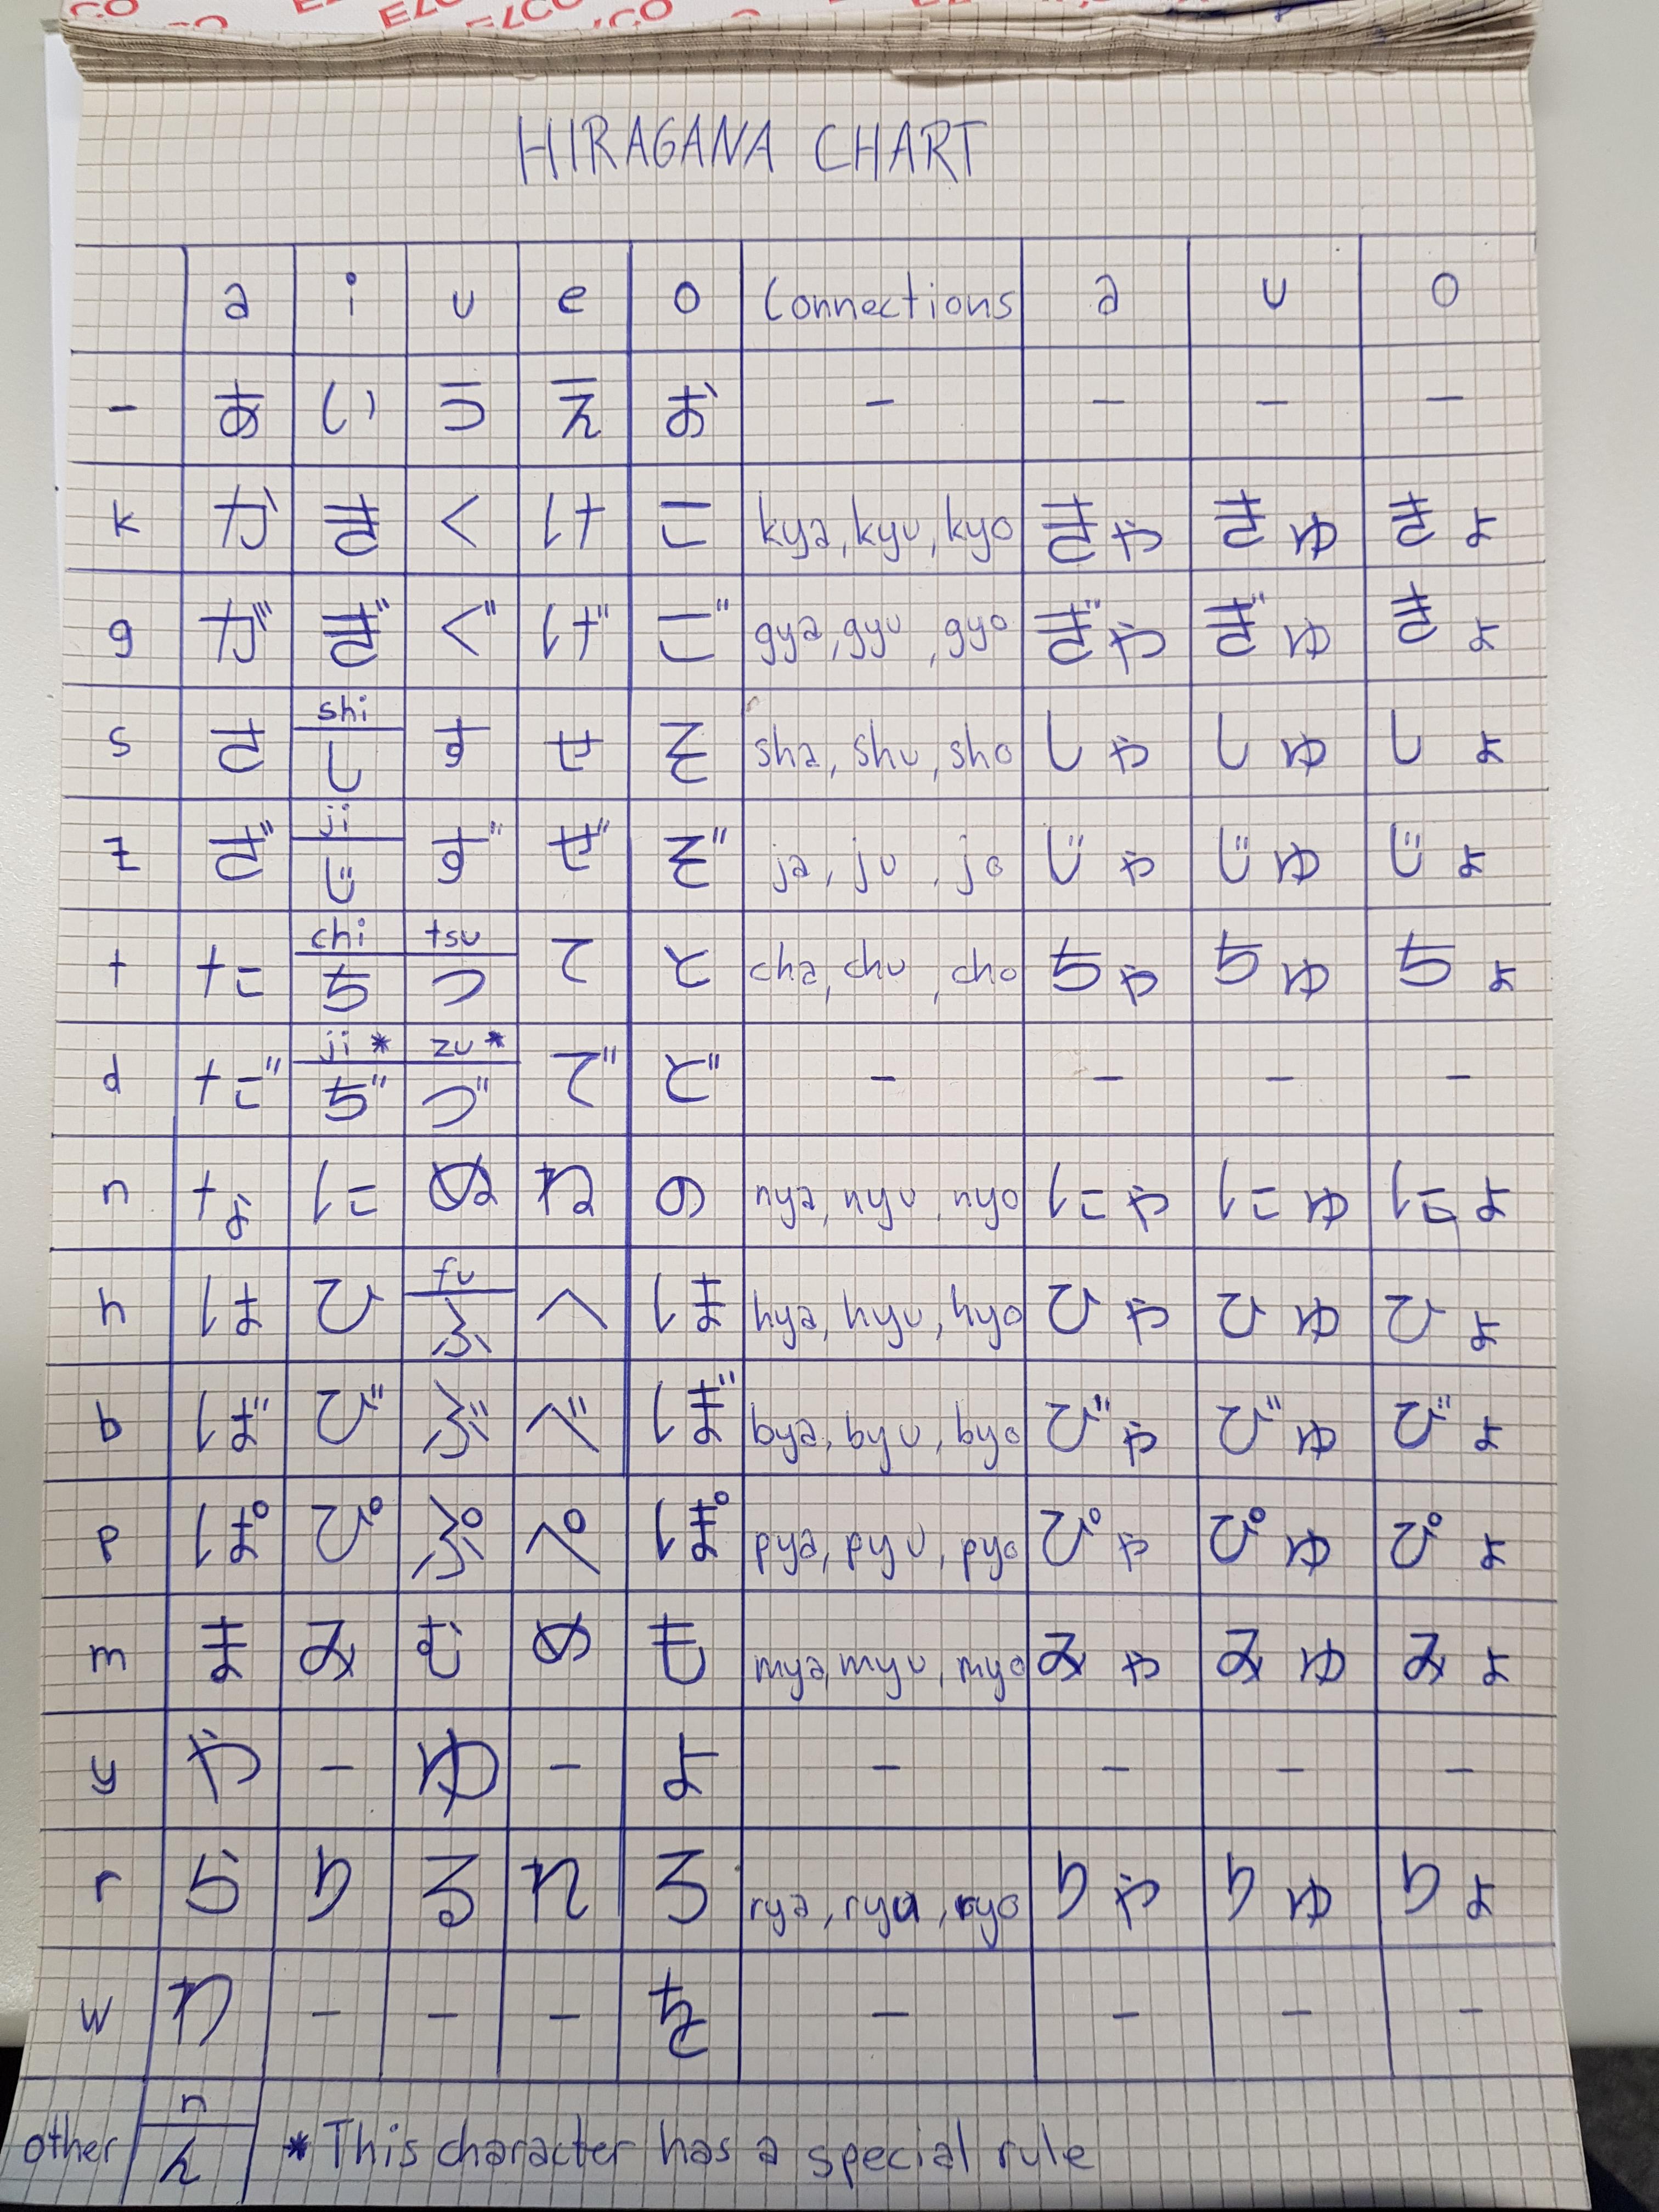 ELCO
HIRAGANA CHART
a i u e o Connections a u o
- あ い う え お - - - -
k か き く け こ kya, kyu, kyo きゃ きゅ きょ
g が ぎ ぐ げ ご gya, gyu, gyo ぎゃ ぎゅ きょ
s さ shi し す せ そ sha, shu, sho しゃ しゅ しょ
z ざ ji じ ず ぜ ぞ ja, ju, jo じゃ じゅ じょ
t た chi ち tsu つ て と cha, chu, cho ちゃ ちゅ ちょ
d だ ji* ぢ zu* づ で ど - - - -
n な に ぬ ね の nya, nyu, nyo にゃ にゅ によ
h は ひ fu ふ へ ほ hya, hyu, hyo ひゃ ひゅ ひょ
b ば び ぶ べ ぼ bya, byu, byo びゃ びゅ びょ
p ぱ ぴ ぷ ぺ ぽ pya, pyu, pyo ぴゃ ぴゅ ぴょ
m ま み む め も mya, myu, myo みゃ みゅ みょ
y や - ゆ - よ - - - -
r ら り る れ ろ rya, ryu, ryo りゃ りゅ りょ
w わ - - - を - - - -
other n ん * This character has a special rule